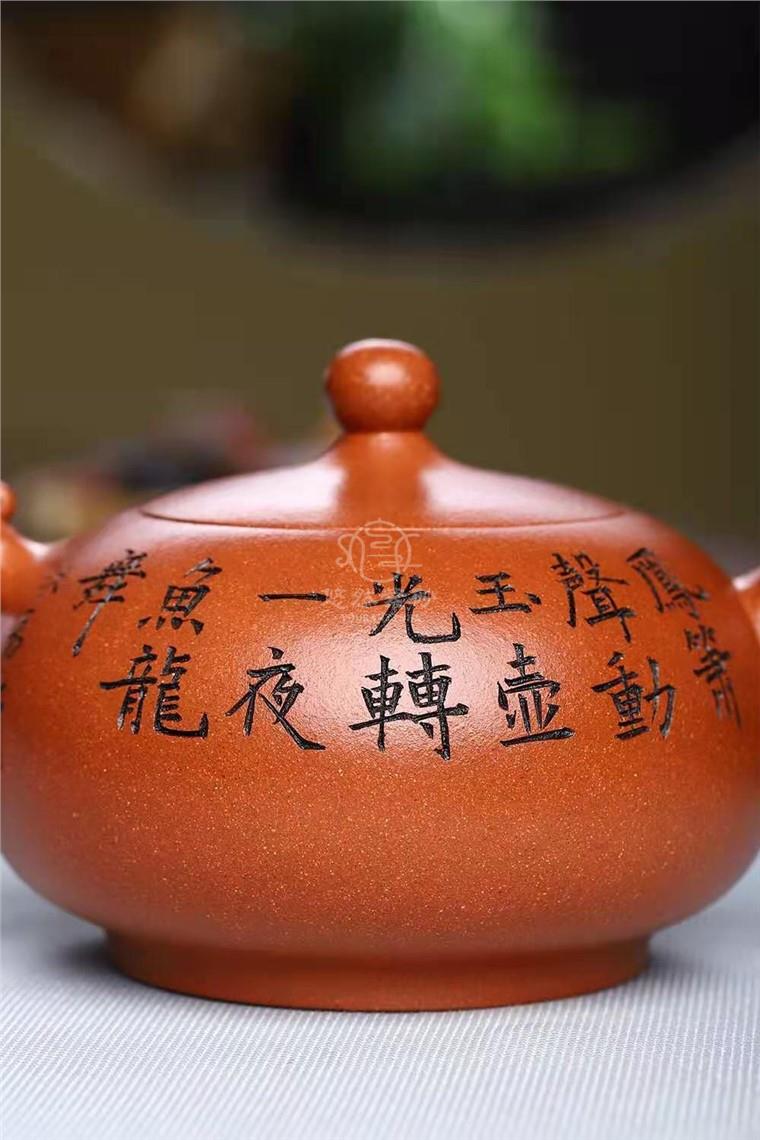 鳳箫
聲動
玉壺
光轉
一夜
魚龍
舞